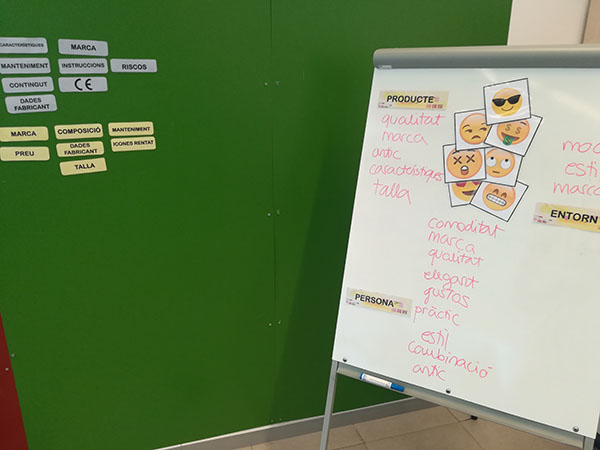 CARACTERÍSTIQUES
MARCA
MANTENIMENT
INSTRUCCIONS
RISCOS
CONTINGUT
CE
DADES
FABRICANT
MARCA
COMPOSICIÓ
MANTENIMENT
PREU
DADES
FABRICANT
ICONES RENTAT
TALLA
PRODUCTE
qualitat
marca
antic
característiques
talla
comoditat
marca
qualitat
elegant
gustos
pràctic
PERSONA
estil
combinació
antic
estil
marca
ENTORN